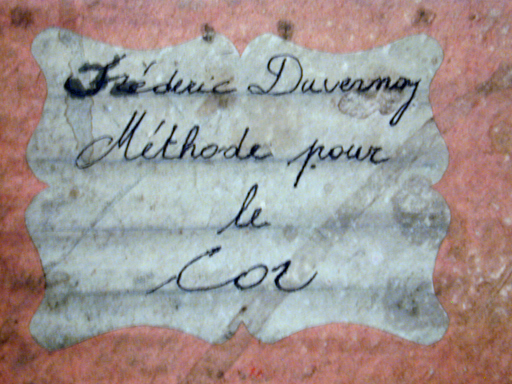 Fréderic Duvernoy
Méthode pour
le
Cor